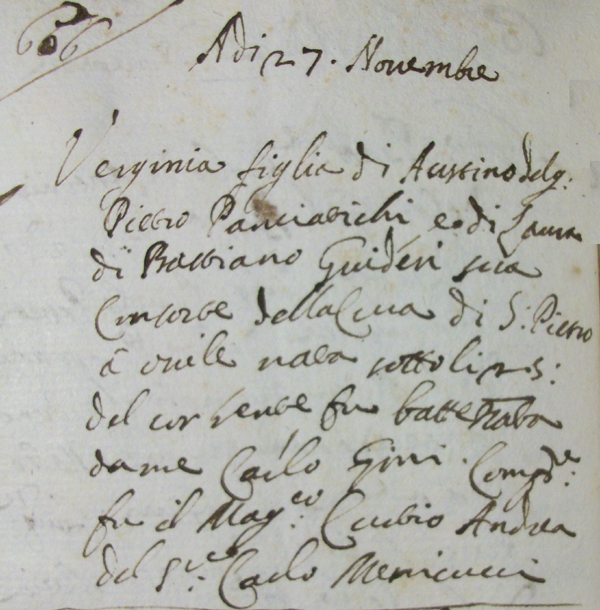 606
Adi 27. Novembre
Verginia figlia di Austino del q:
Pietro Panciatichi e di Laura
di Bastiano Guideri sua
Consorte della Cura di S: Pietro
à ovile nata sotto li 25:
del corrente fu battezzata
da me Carlo Gini. Comp.re:
fu il Mag:co Curtio Andrea
del S.r: Carlo Menicucci